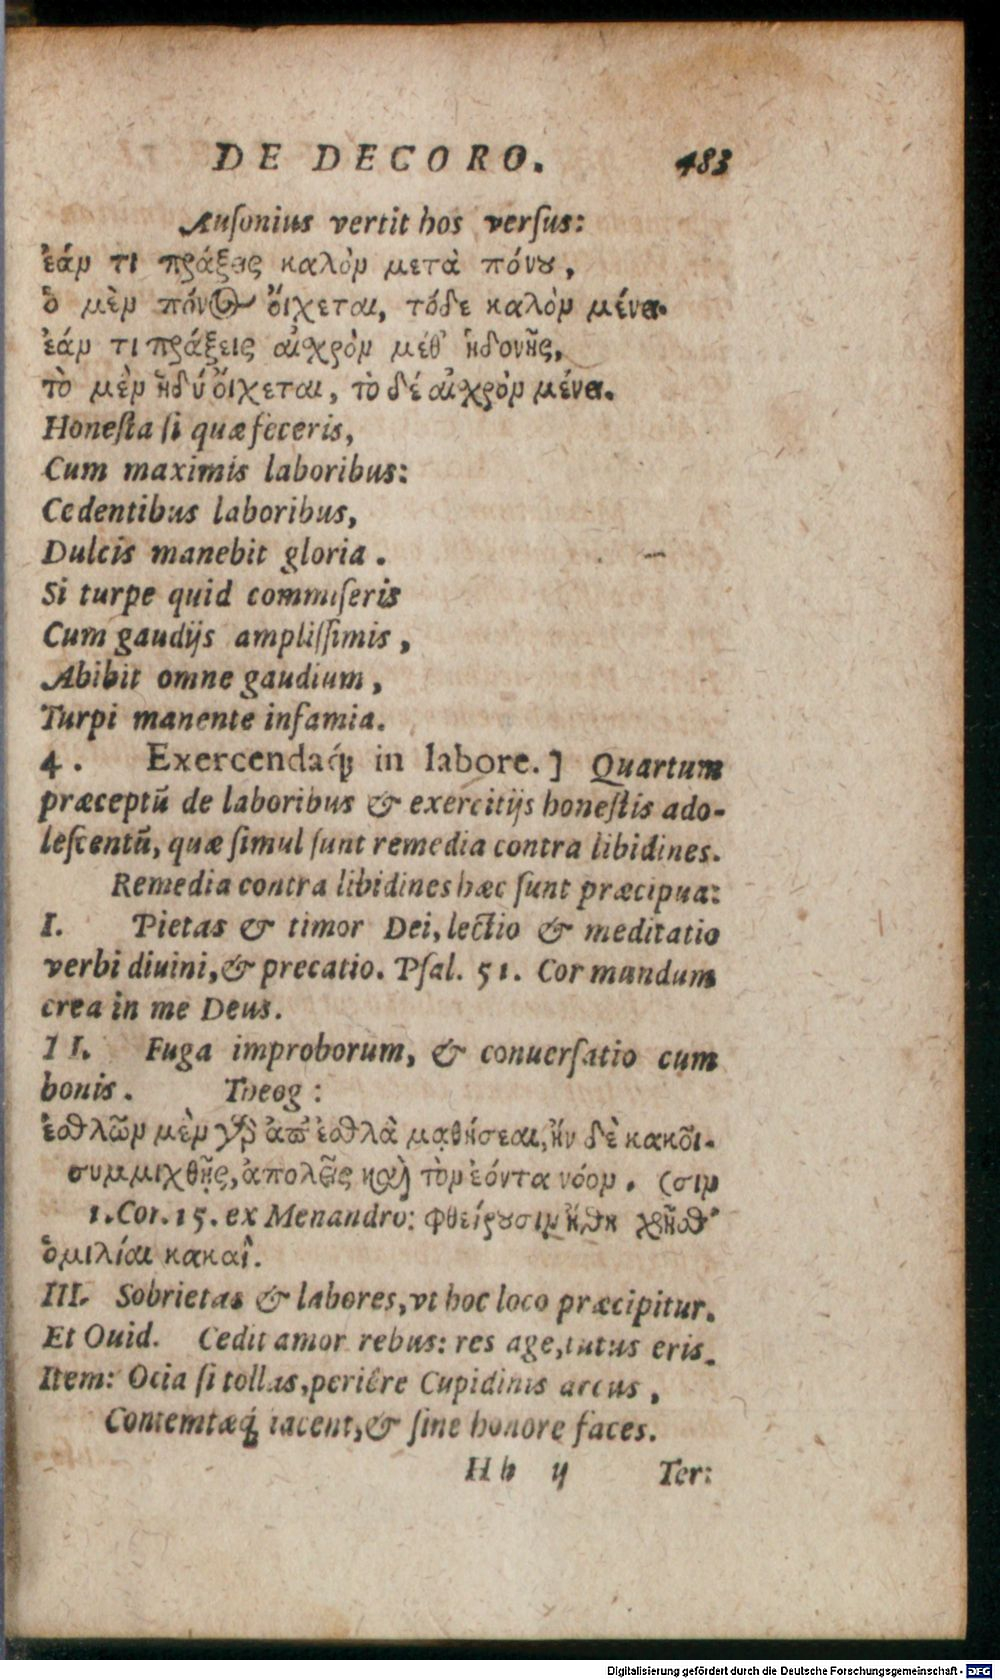 DE DECORO. 483
Auſonius vertit hos verſus:
ἐάν τι πράξεις καλὸν μετὰ πόνου,
ὁ μὲν πόνος οἴχεται, τόδε καλὸν μένει.
ἐάν τι πράξεις αἰχρὸν μέθ' ἡδονῆς,
τὸ μὲν ἡδύ οἴχεται, τὸ δέ αἰχρὸν μένει.
Honeſta ſi quæ feceris,
Cum maximis laboribus:
Cedentibus laboribus,
Dulcis manebit gloria.
Si turpe quid commiſeris
Cum gaudijs ampliſſimis,
Abibit omne gaudium,
Turpi manente infamia.
4. Exercendaq́; in labore.] Quartum
præceptū de laboribus & exercitijs honeſtis ado-
leſcentū, quæ ſimul ſunt remedia contra libidines.
Remedia contra libidines hæc ſunt præcipua:
I. Pietas & timor Dei, lectio & meditatio
verbi diuini, & precatio. Pſal. 51. Cor mundum
crea in me Deus.
II. Fuga improborum, & conuerſatio cum
bonis. Theog:
ἐσθλῶν μὲν γὸ ἀπ' ἐσθλὰ μαθήσεαι, ἢν δὲ κακοῖ-
συμμιχθῇς, ἀπολεῖς καὶ τὸν ἐόντα νόον. (σιν
1. Cor. 15. ex Menandro: φθείρουσιν ἤθη χρῆσθ'
ὁμιλίαι κακαί.
III. Sobrietas & labores, vt hoc loco præcipitur.
Et Ouid. Cedit amor rebus: res age, tutus eris.
Item: Ocia ſi tollas, periêre Cupidinis arcus,
Contemtæq́; iacent, & ſine honore faces.
Hh ij Ter:
Digitalisierung gefördert durch die Deutsche Forschungsgemeinschaft - DFG